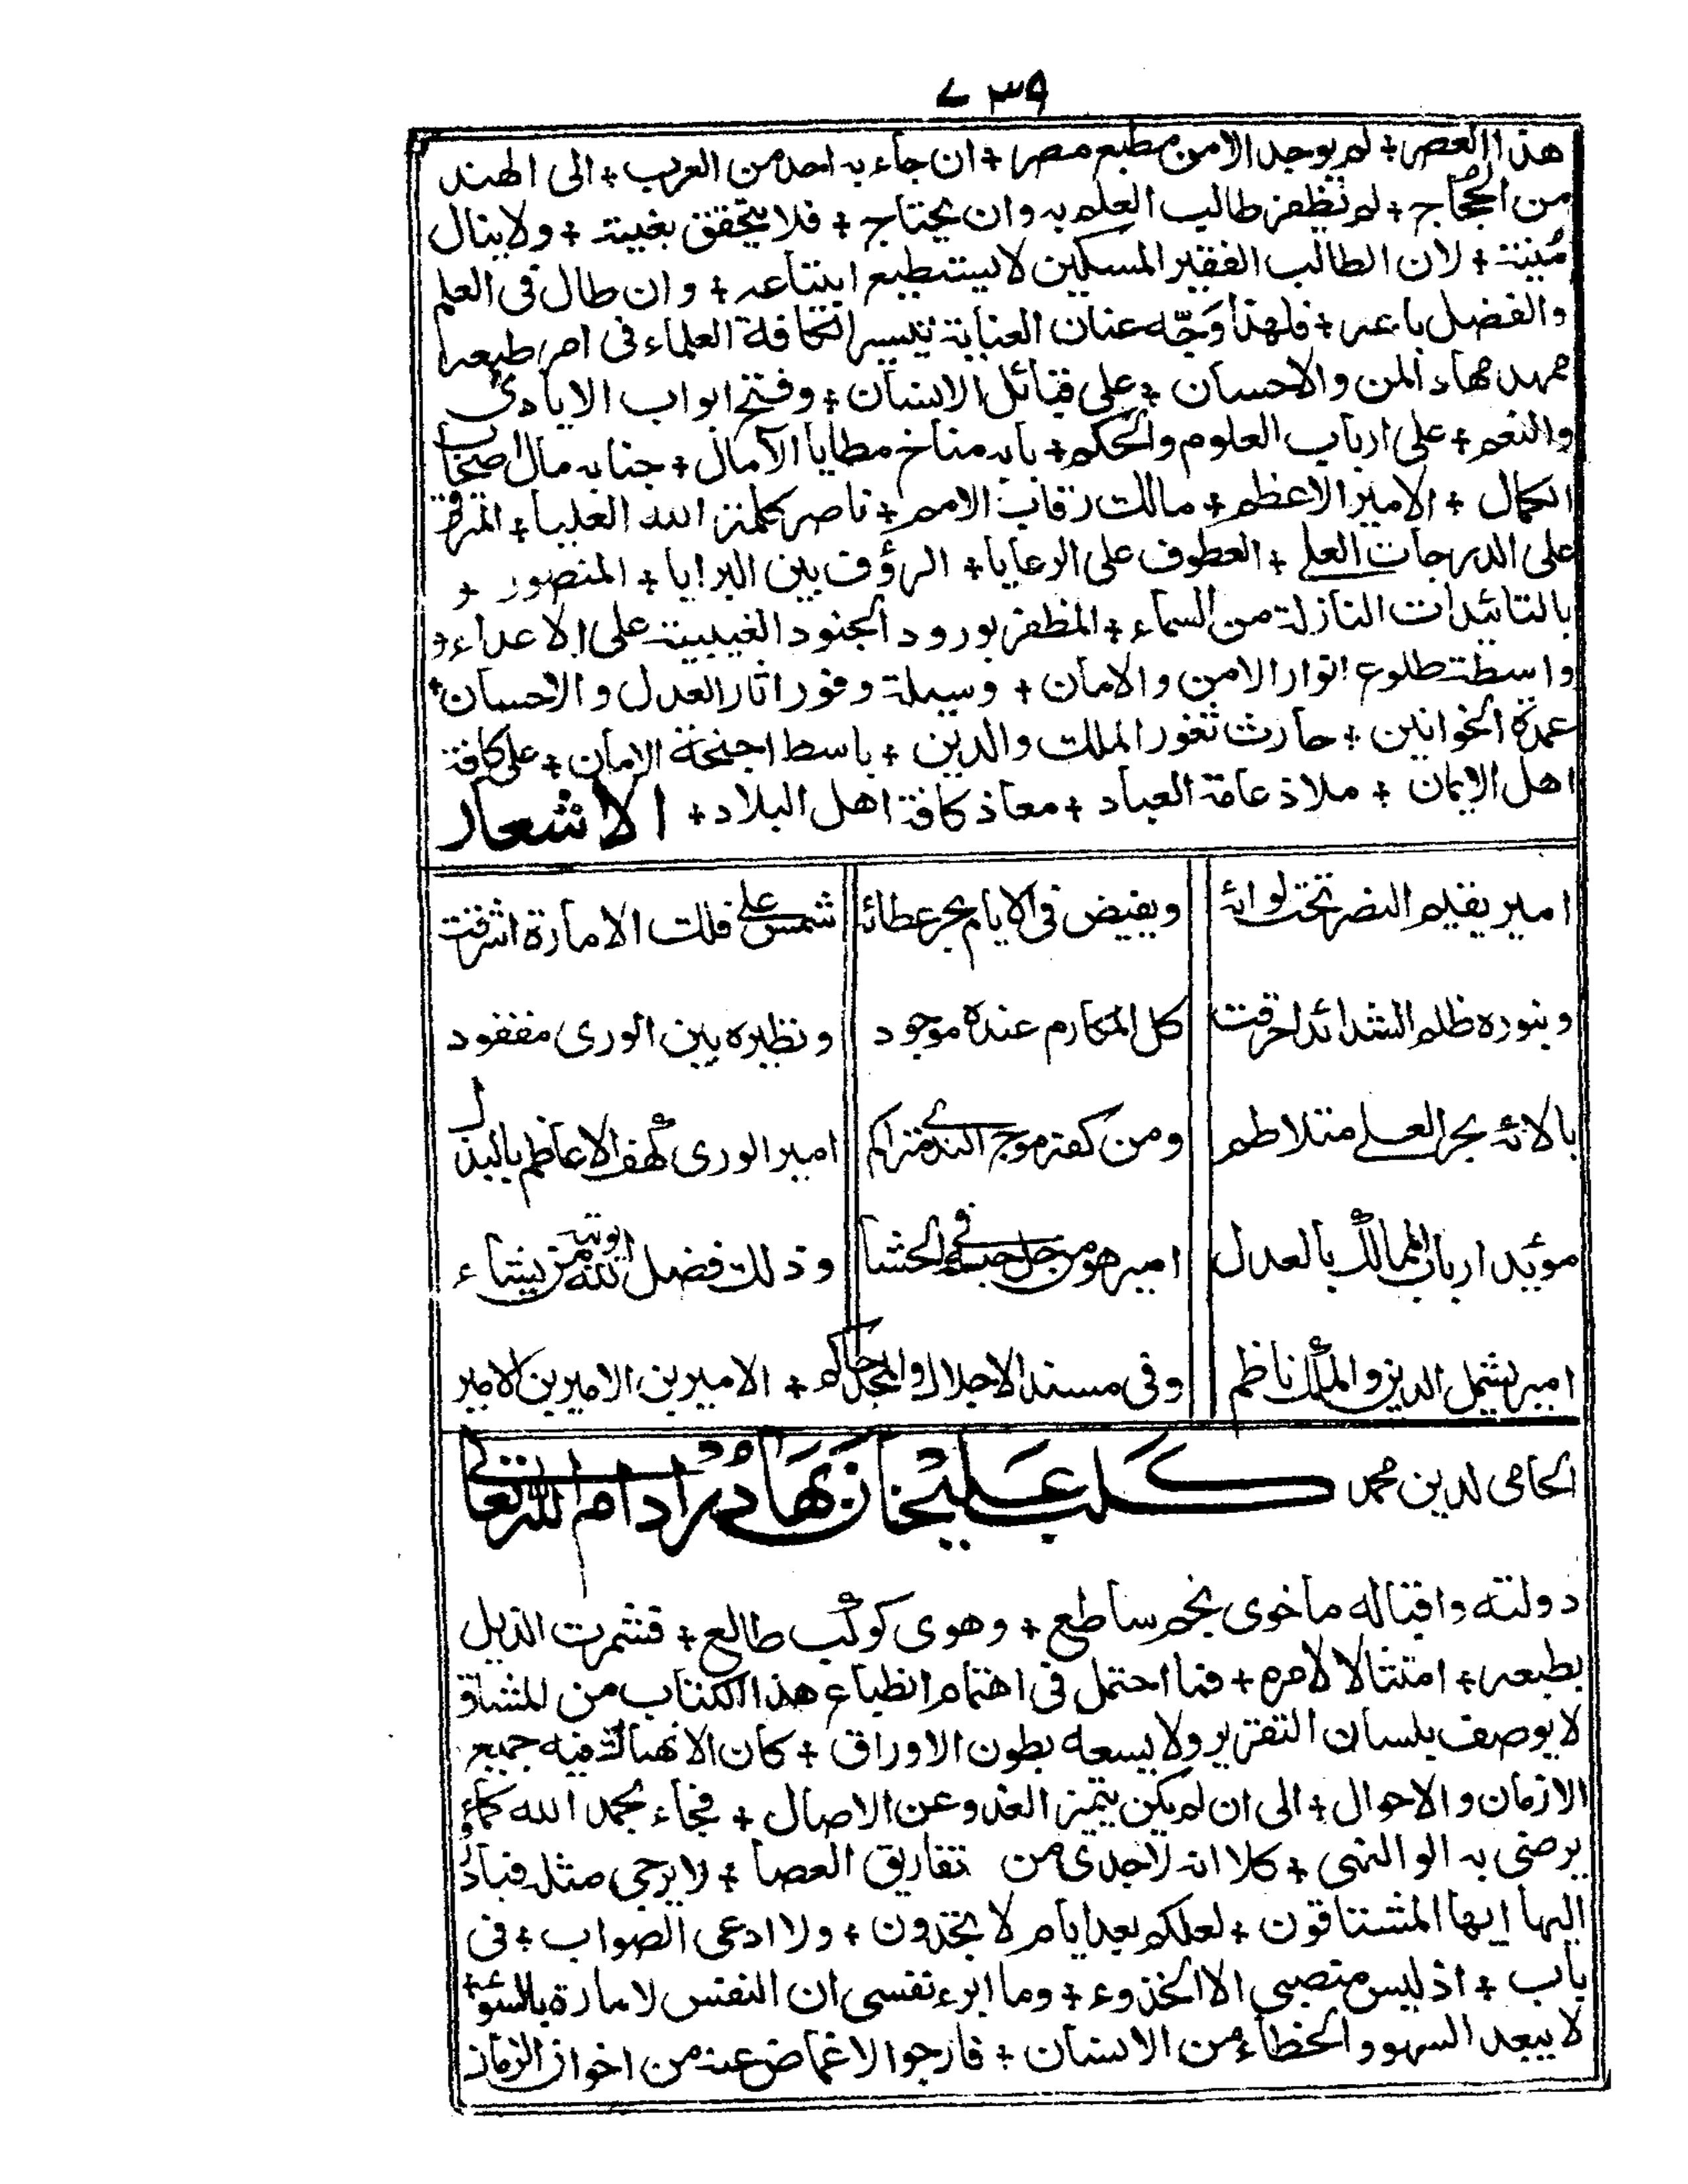 ٧٣٩
هذا العصر + لم يوجد الا من مطبع مصر + ان جاء به احد من العرب + الى الهند
من الحجاج + لم يظفر طالب العلم به وان يحتاج + فلا يتحقق بغيته + ولا ينال
منيته + لان الطالب الفقير المسكين لا يستطيع ابتياعه + وان طال فى العلم
والفضل باعه + فلهذا وَجّه عنان العناية تيسيرا لكافة العلماء فى امر طبعه
ممهد مهاد المن والاحسان + على قبائل الانسان + وفتح ابواب الايادى
والنعم + على ارباب العلوم والحكم + بابه مناخ مطايا الآمال + جنابه مال اصحاب
الكمال + الامير الاعظم + مالك رقاب الامم + ناصر كلمة الله العليا + المترقى
على الدرجات العلے + العطوف على الرعايا + الرؤف بين البرايا + المنصور +
بالتائيدات النازلة من السماء + المظفر بورود الجنود الغيبية على الاعداء +
واسطة طلوع انوار الامن والامان + وسيلة وفور اثار العدل والاحسان +
عمدة الخوانين + حارث ثغور الملك والدين + باسط اجنحة الامان + على كافة
اهل الايمان + ملاذ عامة العباد + معاذ كافة اهل البلاد + الاشعار
امير يقيم النصر تحت لوائه ويفيض فى الايام بحر عطائه شمس على فلك الامارة اشرقت
وبنوره ظلم الشدائد احرقت كل المكارم عنده موجود ونظيره بين الورى مفقود
بالائه بحر العلے متلاطم ومن كفه موج الندے متراكم امير الورى كهف الاعاظم بالبذل
مويد ارباب الممالك بالعدل امير هو من جل حبه فى الحشا وذلك فضل الله يوتيه من يشاء
امير لشمل الدين والملك ناظم وفى مسند الاجلال والمجد حاكم + الامير بن الامير بن الامير
الحامى لدين محمد كلب عليخان بهادر ادام الله تعالى
دولته واقباله ما خوى نجم ساطع + وهوى كوكب طالع + فشمرت الذيل
بطبعه + امتثالا لامره + فما احتمل فى اهتمام انطباع هذا الكتاب من المشاق
لا يوصف بلسان التقرير ولا يسعه بطون الاوراق + كان الانهماك فيه جميع
الازمان والاحوال + الى ان لم يكن يتميز الغدو عن الاصال + فجاء بحمد الله كما
يرضى به الو النهى + كلا انه لاجدى من تفاريق العصا + لا يرجى مثله فبادروا
اليها ايها المشتاقون + لعلكم بعد ايام لا تجدون + ولا ادعى الصواب + فى
باب + اذ ليس منصبى الا وما ابرء نفسى ان النفس لامارة بالسوء +
لا يبعد السهو والخطاء من الانسان + فارجو الاغماض عنه من اخوان الزمان